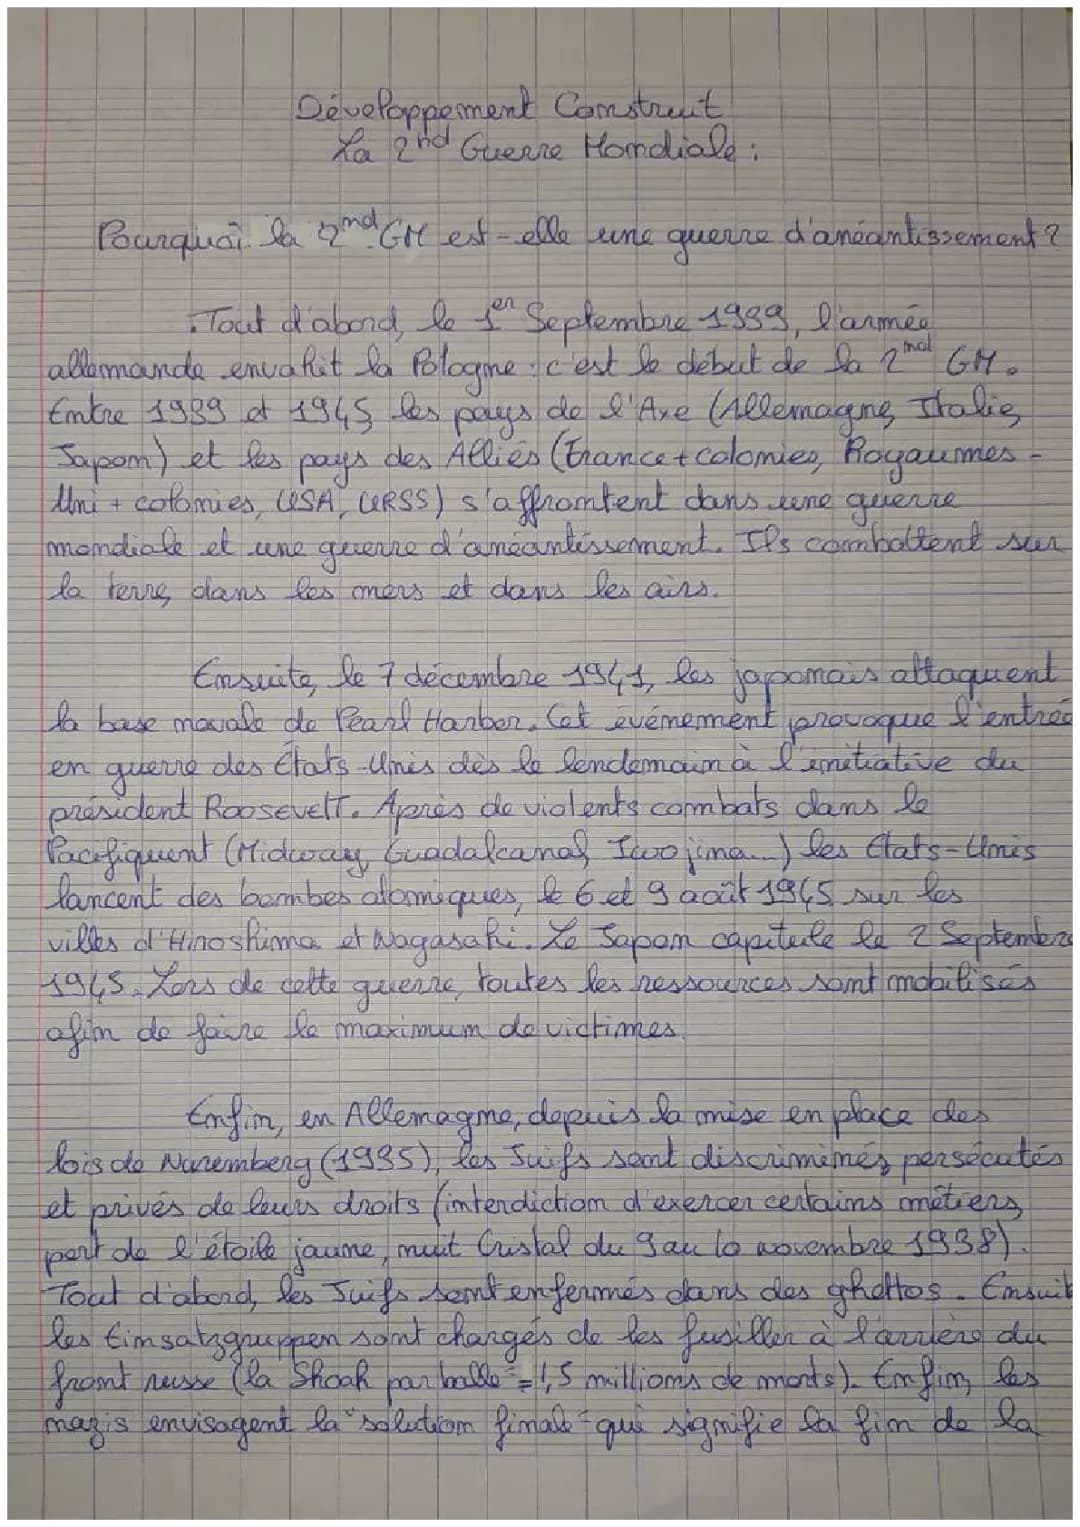 Développement Construit
La 2nd Guerre Mondiale :
Pourquoi la 2nd GM est-elle une guerre d'anéantissement ?
Tout d'abord, le 1er Septembre 1939, l'armée
allemande envahit la Pologne : c'est le début de la 2nd GM.
Entre 1939 et 1945 les pays de l'Axe (Allemagne, Italie,
Japon) et les pays des Alliés (France + colonies, Royaumes-
Uni + colonies, USA, URSS) s'affrontent dans une guerre
mondiale et une guerre d'anéantissement. Ils combattent sur
la terre, dans les mers et dans les airs.
Ensuite, le 7 décembre 1941, les japonais attaquent
la base navale de Pearl Harbor. Cet événement provoque l'entrée
en guerre des États-Unis dès le lendemain à l'initiative du
président Roosevelt. Après de violents combats dans le
Pacifiquent (Midway, Guadalcanal, Iwo jima...) les États-Unis
lancent des bombes atomiques, le 6 et 9 août 1945 sur les
villes d'Hiroshima et Nagasaki. Le Japon capitule le 2 Septembre
1945. Lors de cette guerre, toutes les ressources sont mobilisés
afin de faire le maximum de victimes.
Enfin, en Allemagne, depuis la mise en place des
lois de Nuremberg (1935), les Juifs sont discriminés, persécutés
et privés de leurs droits (interdiction d'exercer certains métiers,
port de l'étoile jaune, nuit Cristal du 9 au 10 novembre 1938).
Tout d'abord, les Juifs sont enfermés dans des ghettos. Ensuit
les Einsatzgruppen sont chargés de les fusiller à l'arrière du
front russe (la Shoah par balle = 1,5 millions de morts). Enfin, les
nazis envisagent la "solution finale" qui signifie la fin de la